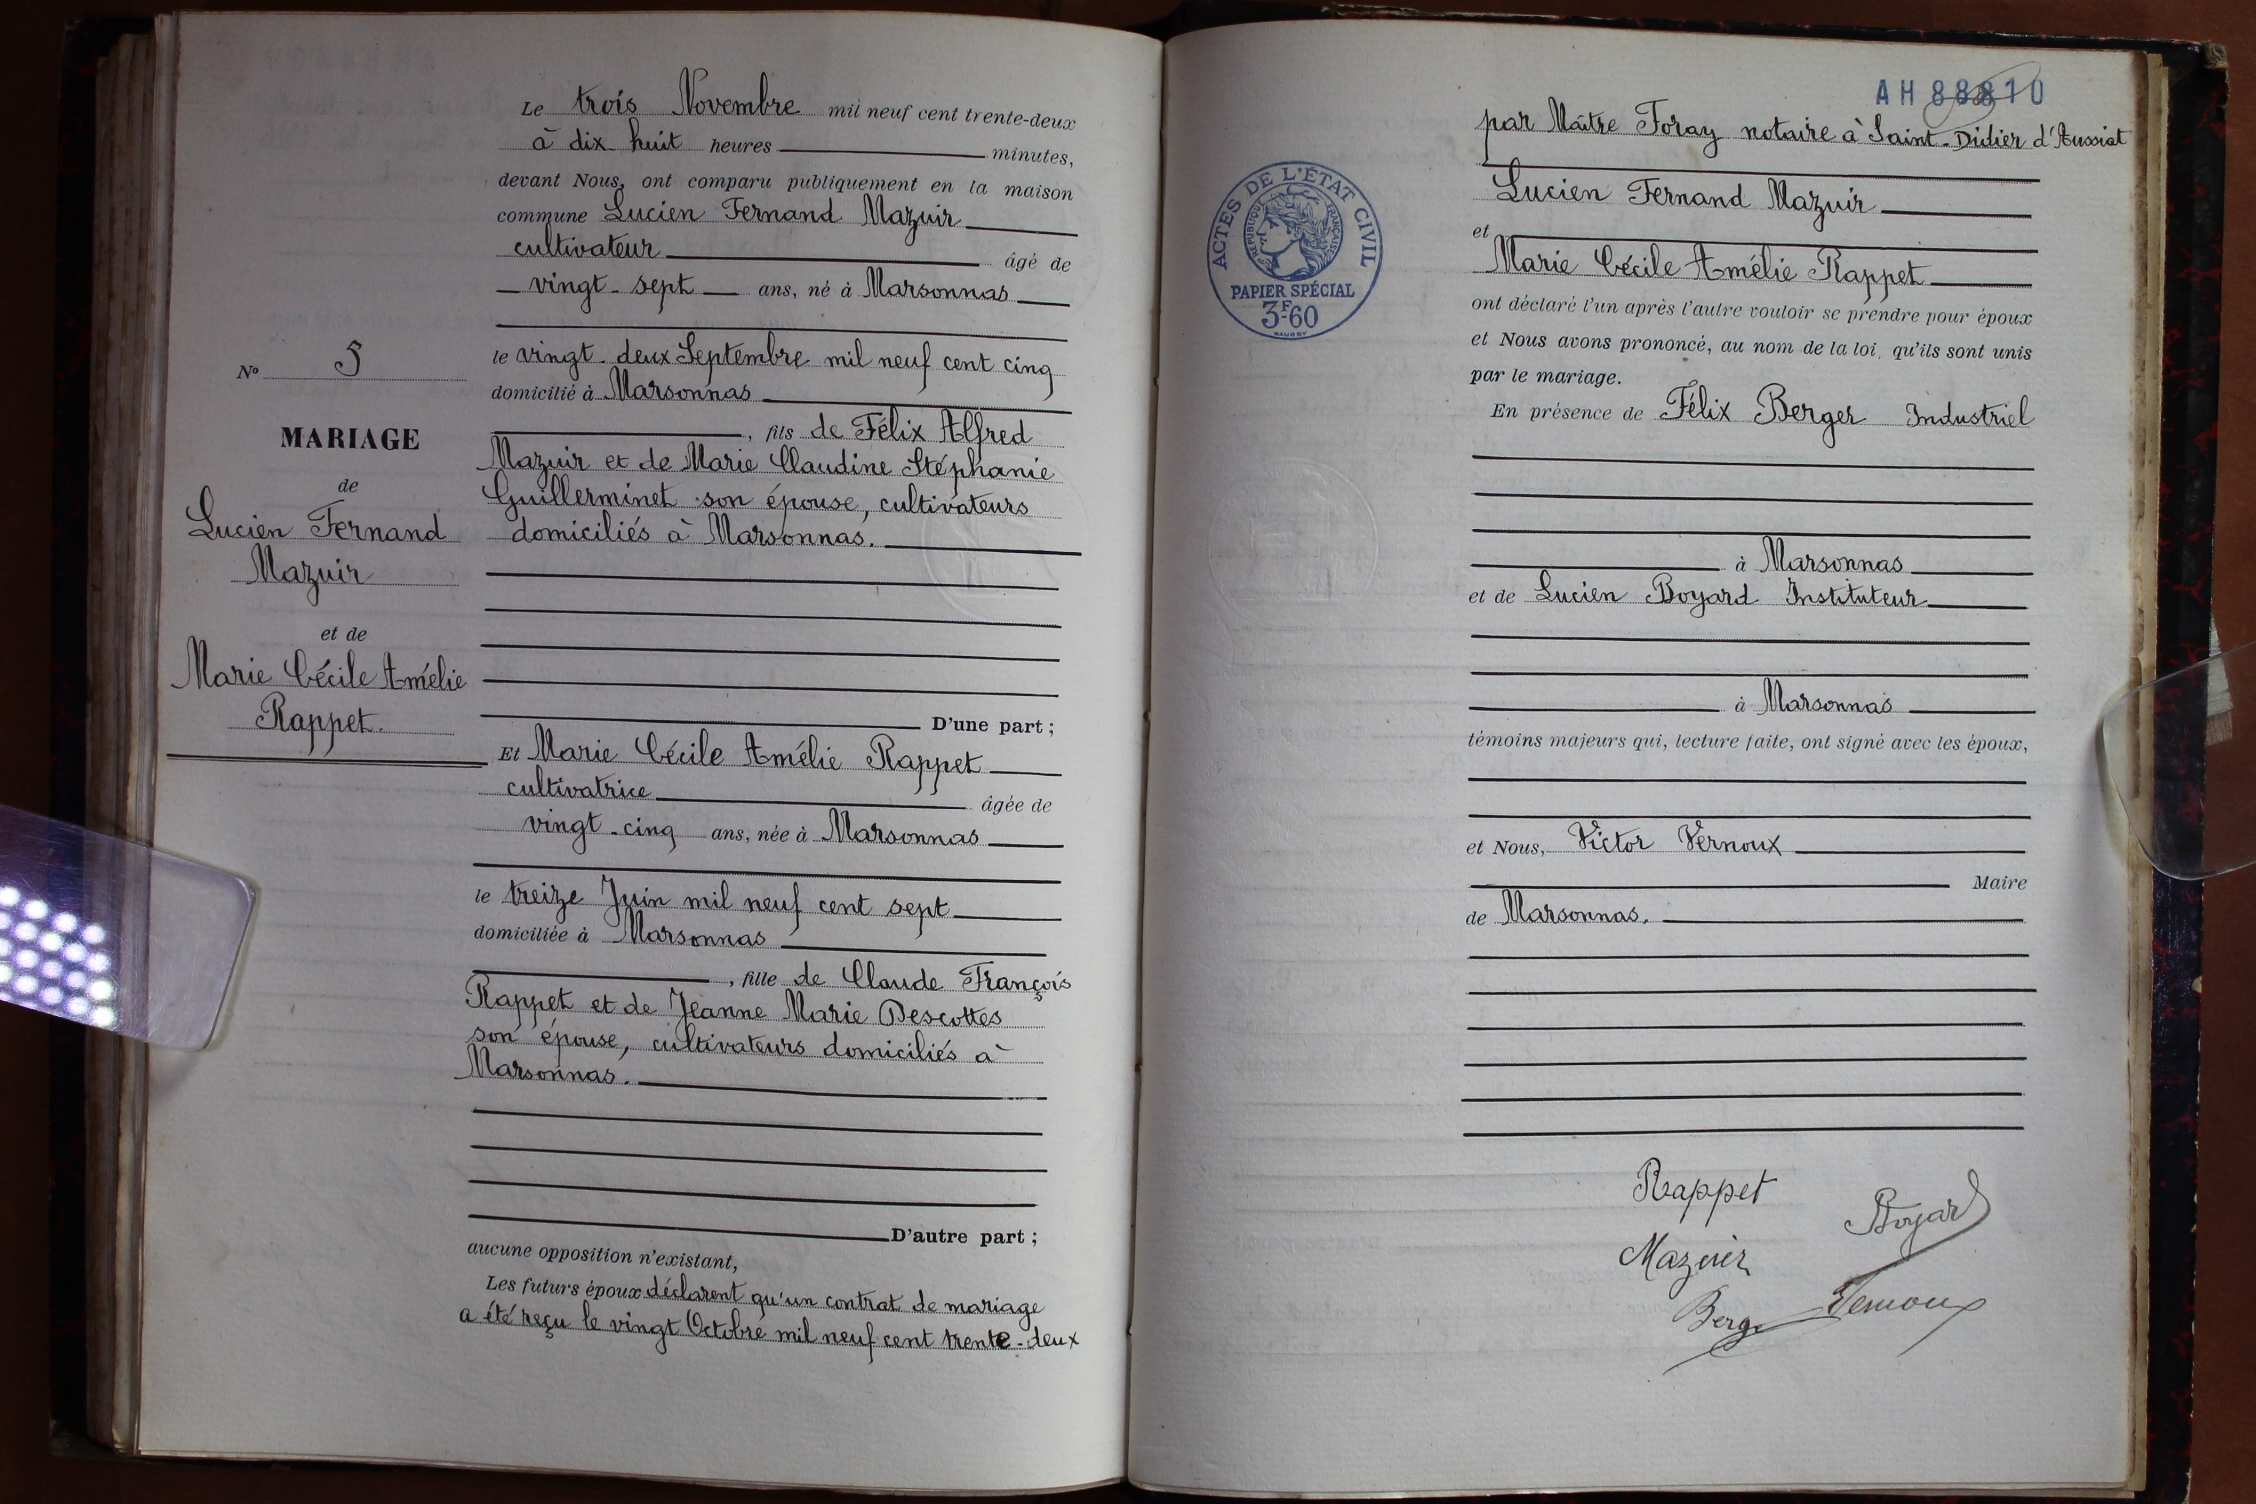 Le trois Novembre mil neuf cent trente-deux
à dix huit heures minutes,
devant Nous, ont comparu publiquement en la maison
commune Lucien Fernand Mazuir
cultivateur âgé de
vingt-sept ans, né à Marsonnas
le vingt-deux Septembre mil neuf cent cinq
domicilié à Marsonnas
, fils de Félix Alfred
Mazuir et de Marie Claudine Stéphanie
Guillerminet son épouse, cultivateurs
domiciliés à Marsonnas.
D'une part ;
Et Marie Cécile Amélie Rappet
cultivatrice âgée de
vingt-cinq ans, née à Marsonnas
le treize Juin mil neuf cent sept
domiciliée à Marsonnas
, fille de Claude François
Rappet et de Jeanne Marie Descottes
son épouse, cultivateurs domiciliés à
Marsonnas.
D'autre part ;
aucune opposition n'existant,
Les futurs époux déclarent qu'un contrat de mariage
a été reçu le vingt Octobre mil neuf cent trente-deux
No 5
MARIAGE
de
Lucien Fernand
Mazuir
et de
Marie Cécile Amélie
Rappet.
AH 88810
par Maître Foray notaire à Saint-Didier d'Aussiat
Lucien Fernand Mazuir
et
Marie Cécile Amélie Rappet
ont déclaré l'un après l'autre vouloir se prendre pour époux
et Nous avons prononcé, au nom de la loi, qu'ils sont unis
par le mariage.
En présence de Félix Berger Industriel
à Marsonnas
et de Lucien Boyard Instituteur
à Marsonnas
témoins majeurs qui, lecture faite, ont signé avec les époux,
et Nous, Victor Vernoux
Maire
de Marsonnas.
ACTES DE L'ÉTAT CIVIL
RÉPUBLIQUE FRANÇAISE
PAPIER SPÉCIAL
3F60
Rappet
Boyard
Mazuir
Berger
Vernoux